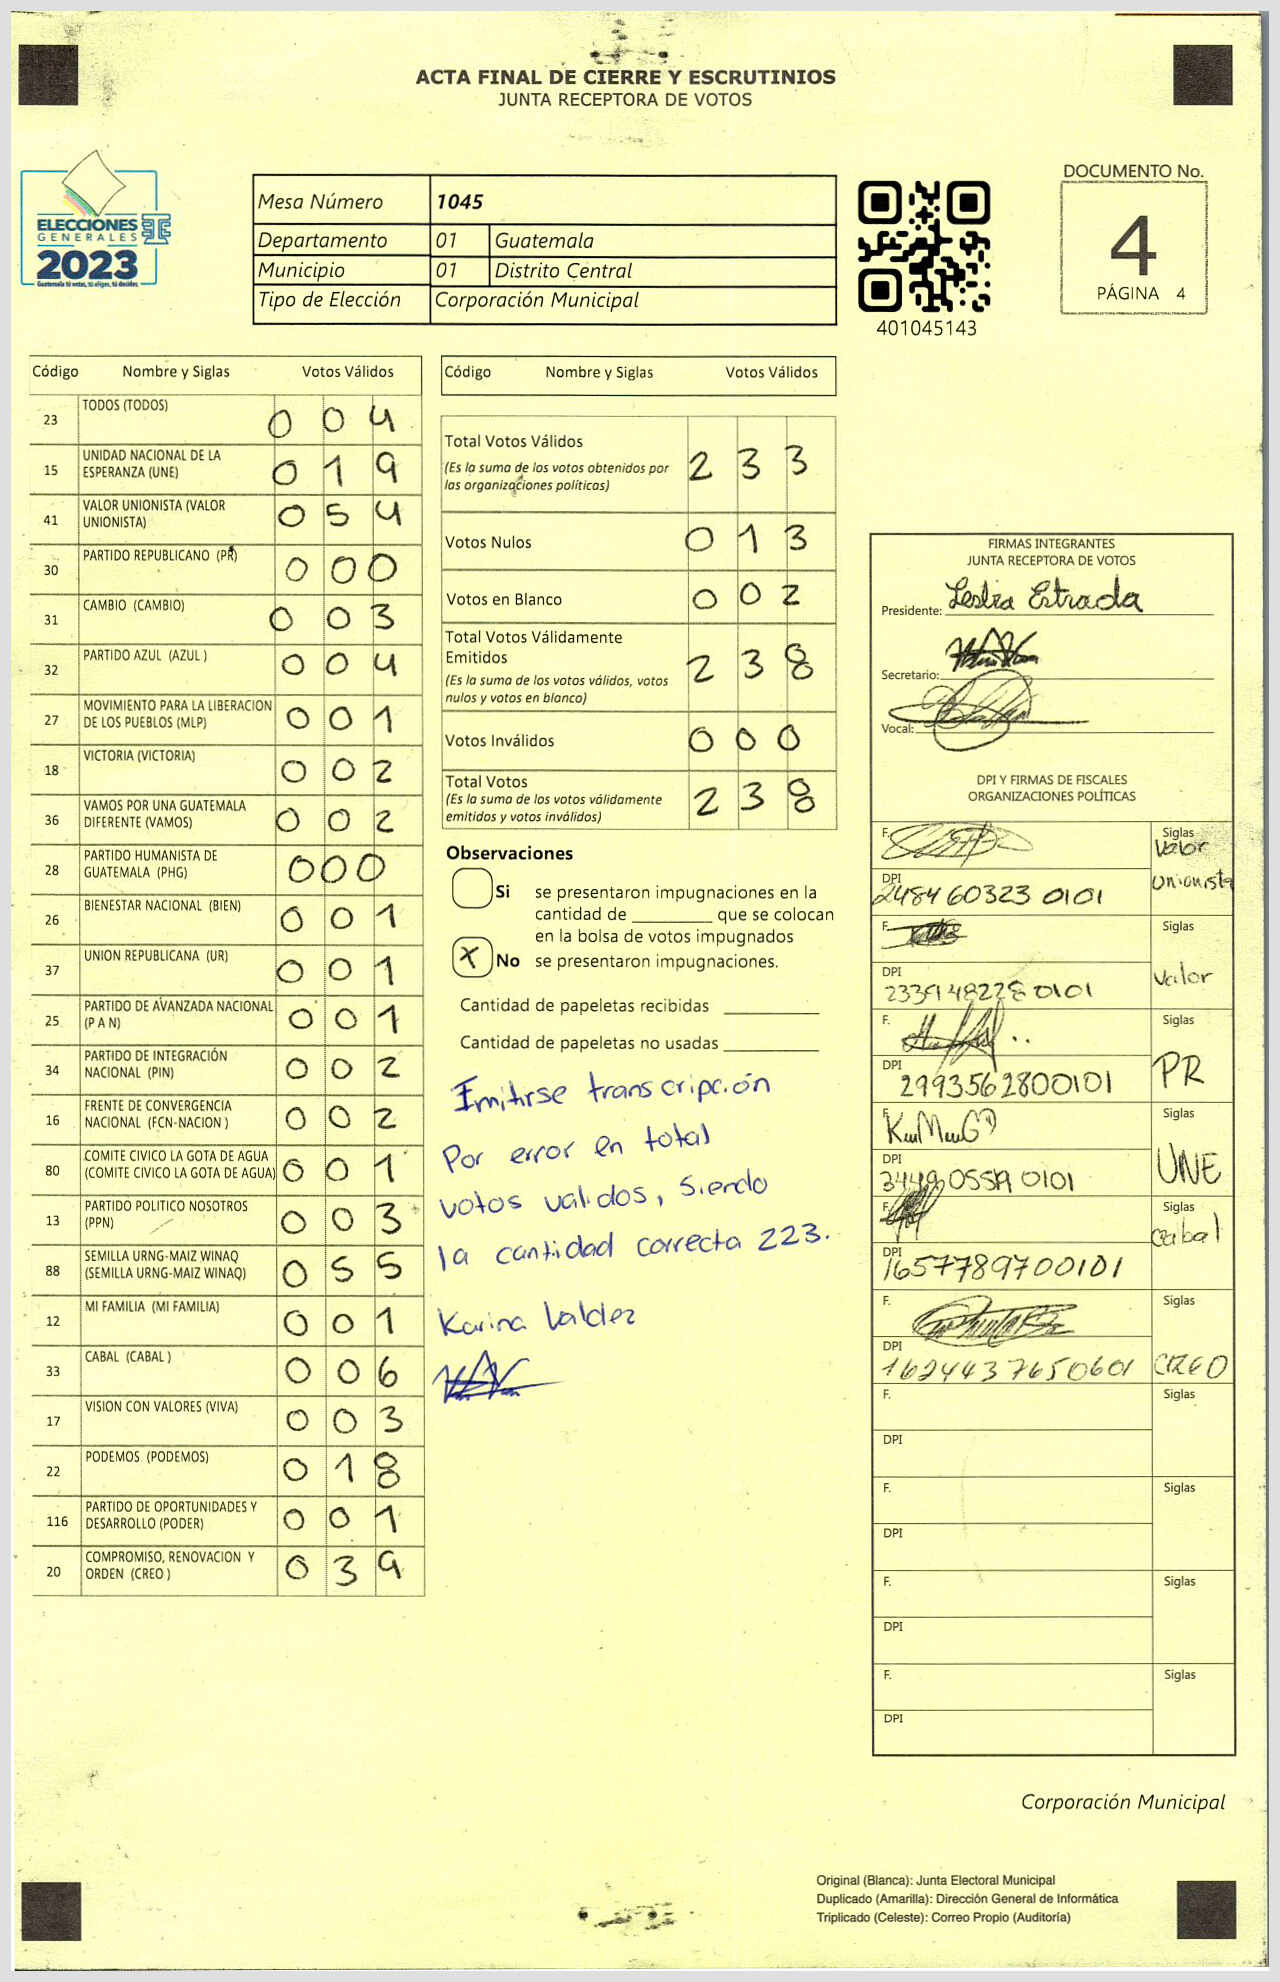 ACTA FINAL DE CIERRE Y ESCRUTINIOS
JUNTA RECEPTORA DE VOTOS
ELECCIONES
GENERALES
2023
Guatemala tú votas, tú eliges, tú decides
Mesa Número 1045
Departamento 01 Guatemala
Municipio 01 Distrito Central
Tipo de Elección Corporación Municipal
401045143
DOCUMENTO No.
4
PÁGINA 4
Código Nombre y Siglas Votos Válidos
23 TODOS (TODOS) 0 0 4
15 UNIDAD NACIONAL DE LA ESPERANZA (UNE) 0 1 9
41 VALOR UNIONISTA (VALOR UNIONISTA) 0 5 4
30 PARTIDO REPUBLICANO (PR) 0 0 0
31 CAMBIO (CAMBIO) 0 0 3
32 PARTIDO AZUL (AZUL ) 0 0 4
27 MOVIMIENTO PARA LA LIBERACION DE LOS PUEBLOS (MLP) 0 0 1
18 VICTORIA (VICTORIA) 0 0 2
36 VAMOS POR UNA GUATEMALA DIFERENTE (VAMOS) 0 0 2
28 PARTIDO HUMANISTA DE GUATEMALA (PHG) 0 0 0
26 BIENESTAR NACIONAL (BIEN) 0 0 1
37 UNION REPUBLICANA (UR) 0 0 1
25 PARTIDO DE AVANZADA NACIONAL (P A N) 0 0 1
34 PARTIDO DE INTEGRACIÓN NACIONAL (PIN) 0 0 2
16 FRENTE DE CONVERGENCIA NACIONAL (FCN-NACION ) 0 0 2
80 COMITE CIVICO LA GOTA DE AGUA (COMITE CIVICO LA GOTA DE AGUA) 0 0 1
13 PARTIDO POLITICO NOSOTROS (PPN) 0 0 3
88 SEMILLA URNG-MAIZ WINAQ (SEMILLA URNG-MAIZ WINAQ) 0 5 5
12 MI FAMILIA (MI FAMILIA) 0 0 1
33 CABAL (CABAL ) 0 0 6
17 VISION CON VALORES (VIVA) 0 0 3
22 PODEMOS (PODEMOS) 0 1 8
116 PARTIDO DE OPORTUNIDADES Y DESARROLLO (PODER) 0 0 1
20 COMPROMISO, RENOVACION Y ORDEN (CREO ) 0 3 9
Código Nombre y Siglas Votos Válidos
Total Votos Válidos 2 3 3
(Es la suma de los votos obtenidos por
las organizaciones políticas)
Votos Nulos 0 1 3
Votos en Blanco 0 0 2
Total Votos Válidamente
Emitidos 2 3 8
(Es la suma de los votos válidos, votos
nulos y votos en blanco)
Votos Inválidos 0 0 0
Total Votos 2 3 8
(Es la suma de los votos válidamente
emitidos y votos inválidos)
Observaciones
Si se presentaron impugnaciones en la
cantidad de ________ que se colocan
en la bolsa de votos impugnados
X No se presentaron impugnaciones.
Cantidad de papeletas recibidas
Cantidad de papeletas no usadas
Imitirse transcripción
Por error en total
votos validos, siendo
la cantidad correcta 223.
Karina Valdez
FIRMAS INTEGRANTES
JUNTA RECEPTORA DE VOTOS
Presidente: Leslia Estrada
Secretario:
Vocal:
DPI Y FIRMAS DE FISCALES
ORGANIZACIONES POLÍTICAS
F. Siglas Valor Unionista
DPI 2484 60323 0101
F. Siglas Valor
DPI 2339 48228 0101
F. Siglas PR
DPI 2993562800101
F. Siglas UNE
DPI
F. Siglas Cabal
DPI 1657789700101
F. Siglas CREO
DPI 1624437650601
F. Siglas
DPI
F. Siglas
DPI
F. Siglas
DPI
F. Siglas
DPI
Corporación Municipal
Original (Blanca): Junta Electoral Municipal
Duplicado (Amarilla): Dirección General de Informática
Triplicado (Celeste): Correo Propio (Auditoría)